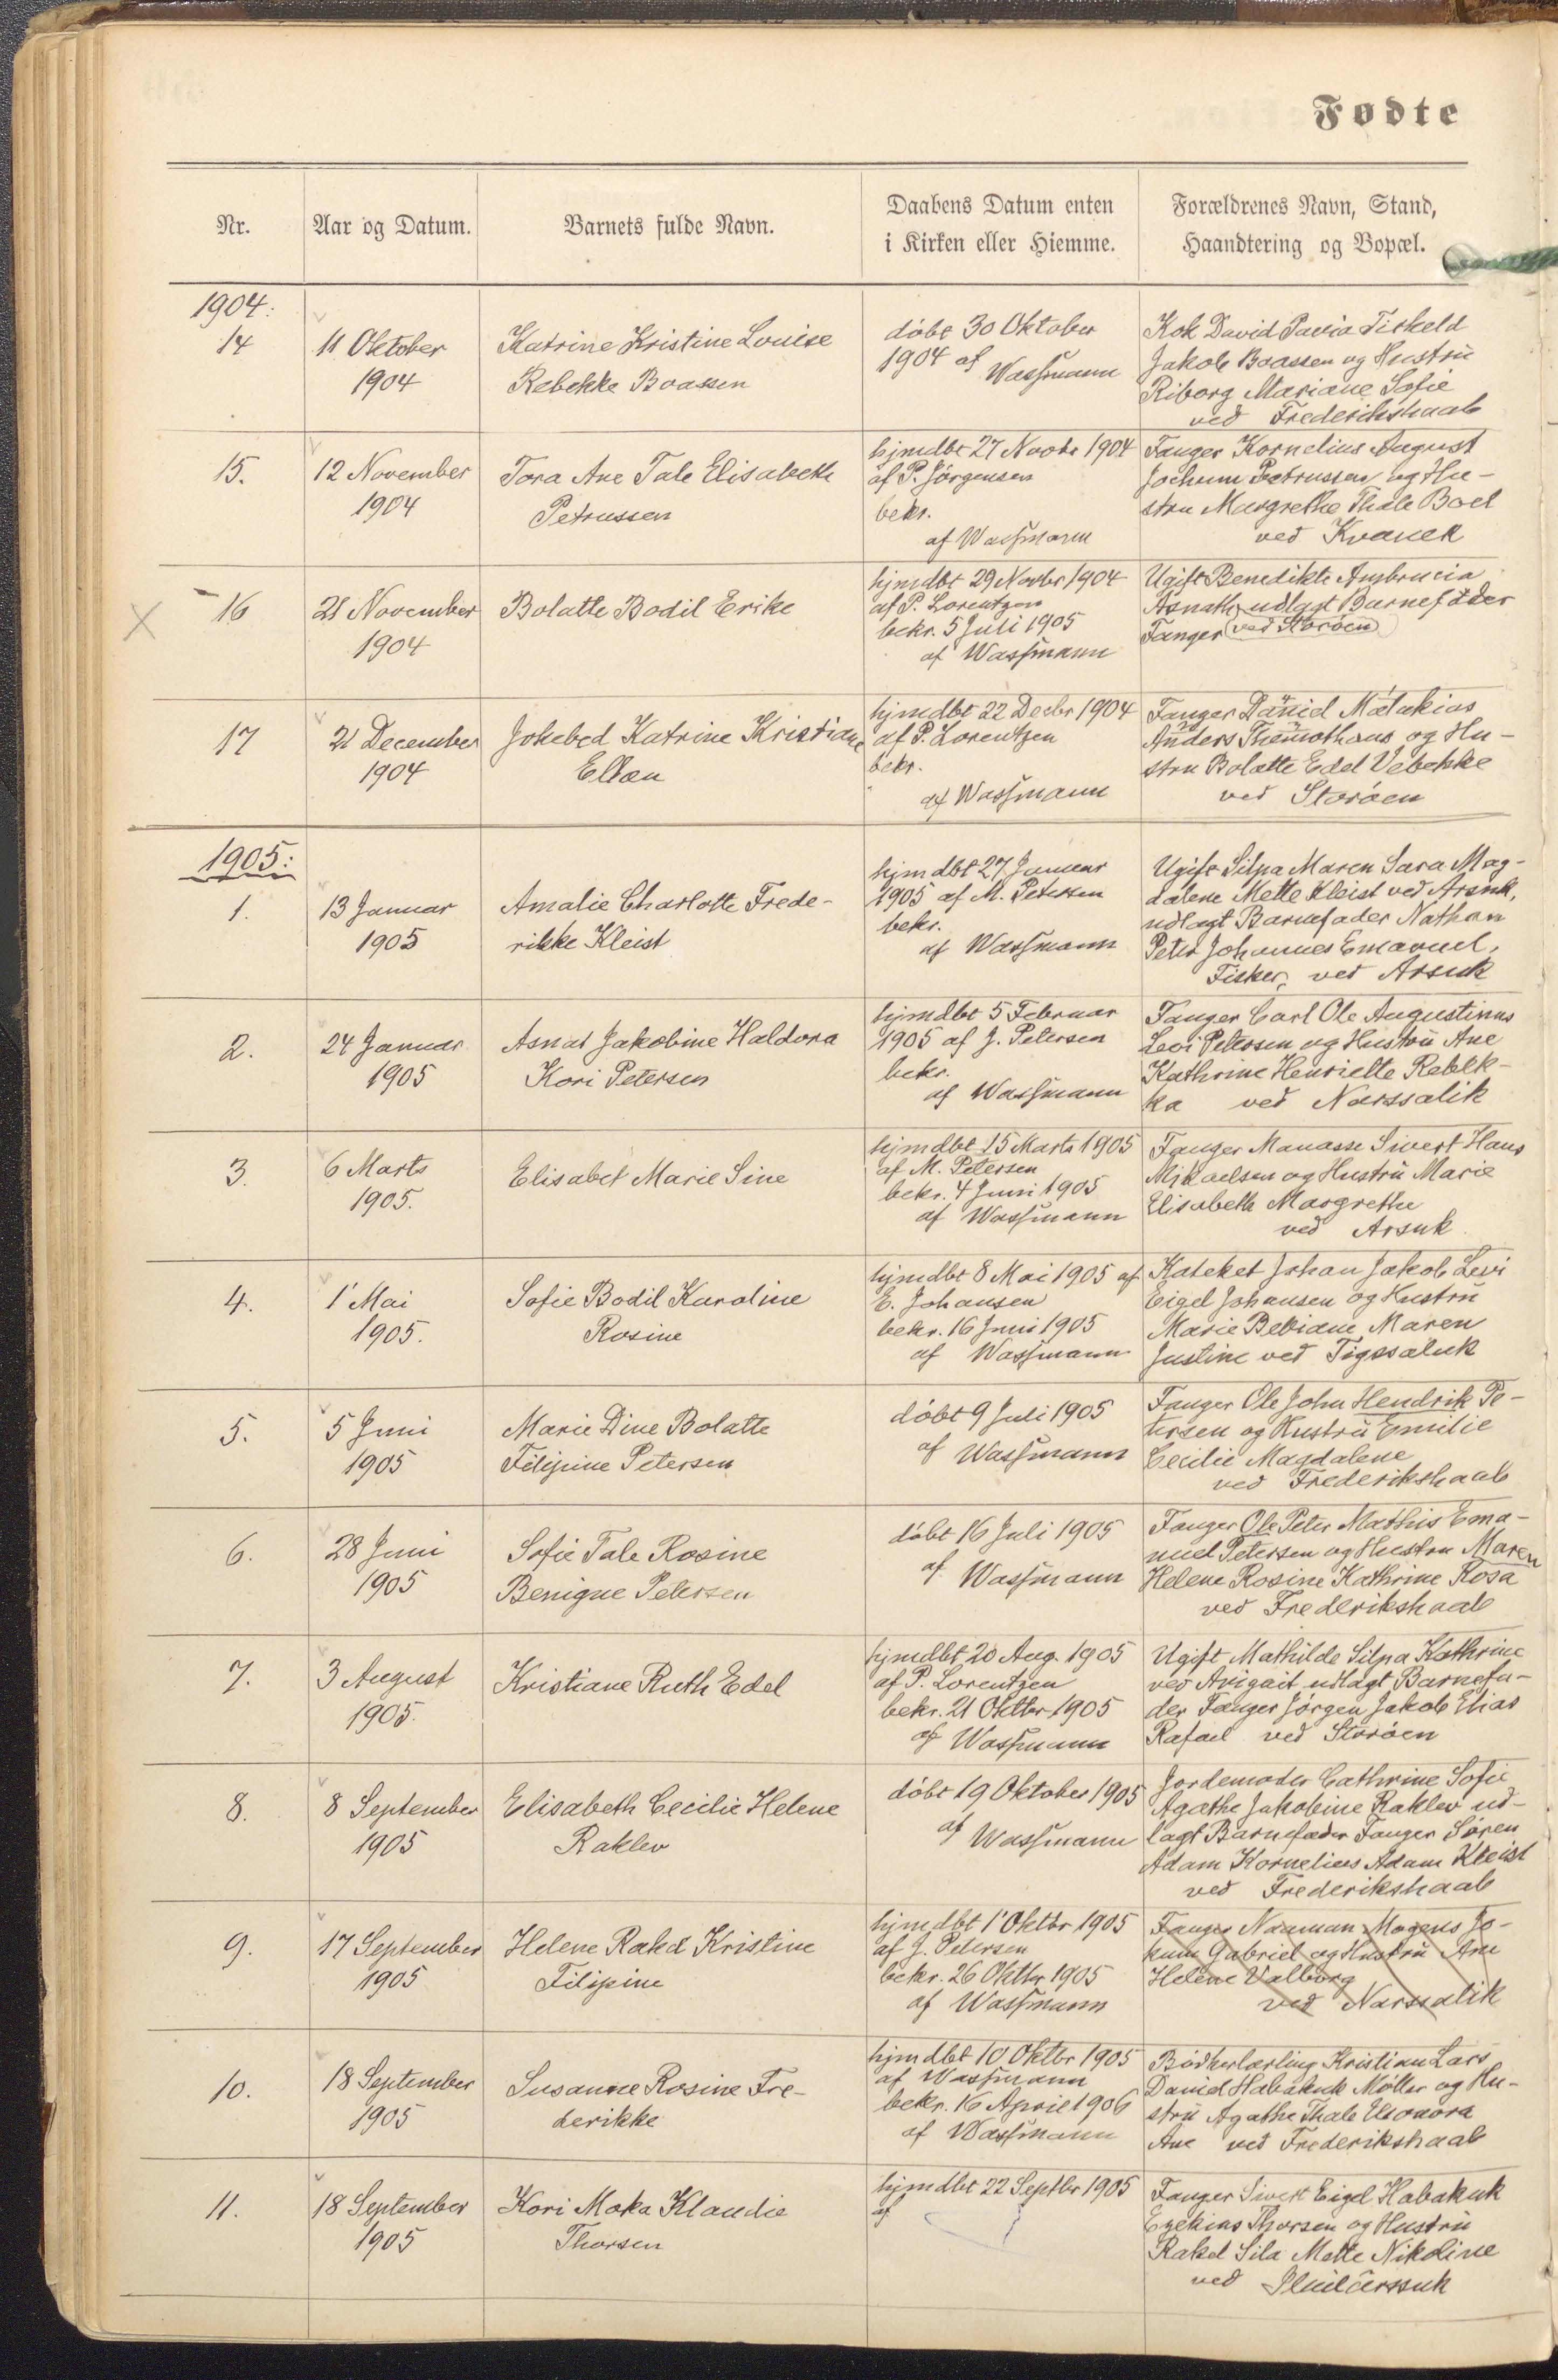 Fødte
Nr.
Aar og Datum.
Barnets fulde Navn.
Daabens Datum enten
i Kirken eller Hiemme.
Forældrenes Navn, Stand,
Haandtering og Bopæl.
1904:
14
11 Oktober
1904
Katrine Kristine Louise
Rebekke Boassen
döbt 30 Oktober
1904 af
Wassmann
Kok David Pavia Tiskeld
Jakob Boassen og Hustrú
Riborg Mariane Sofie
ved Frederikshaab
15.
12 November
1904
Tora Ane Tale Elisabeth
Petrussen
hjmdbt 27 Novbr 1904
af P. Jörgensen
bekr.
af Wassmann
Fanger Kornelius August
Jochum Petrussen og Hu-
stru Margrethe Thale Boel
ved Kvanek
16
21 November
1904
Bolatte Bodil Erike
hjmdbt 29 Novbr 1904
af P. Lorentzen
bekr. 5 Juli 1905
af Wassmann
Ugift Benedikte Ambrucia
Asnath, udlagt Barnefader
Fanger (ved Storöen)
17
21 December
1904
Jokebed Katrine Kristiane
Ellen
hjmdbt 22 Decbr 1904
af P. Lorentzen
bekr.
af Wassmann
Fanger Daniel Malakias
Anders Themothæus og Hu-
stru Bolatte Edel Vebekke
ved Storöen
1905:
1.
13 Januar
1905
Amalie Charlotte Frede-
rikke Kleist
hjmdbt 27 Januar
1905 af M. Petersen
bekr.
af Wassmann
Ugift Silpa Maren Sara Mag-
dalene Mette Kleist ved Arsuk,
udlagt Barnefader Nathan
Peter Johannes Emanuel,
Fisker, ved Arsuk
2.
24 Januar
1905
Asnat Jakobine Haldora
Kori Petersen
hjmdbt 5 Februar
1905 af J. Petersen
bekr.
af Wassmann
Fanger Carl Ole Augustinus
Levi Petersen og Hustrú Ane
Kathrine Henriette Rebek-
ka ved Narssalik
3.
6 Marts
1905.
Elisabet Marie Sine
hjmdbt 15 Marts 1905
af M. Petersen
bekr. 4 Juni 1905
af Wassmann
Fanger Manasse Sivert Hans
Mikaelsen og Hustrú Marie
Elisabeth Margrethe
ved Arsuk
4.
1' Mai
1905.
Sofie Bodil Karoline
Rosine
hjmdbt 8 Mai 1905 af
E. Johansen
bekr. 16 Juni 1905
af Wassmann
Kateket Johan Jakob Levi
Eigel Johansen og Hustrú
Marie Bebiane Maren
Justine ved Tigssaluk
5.
5 Juni
1905
Marie Dine Bolatte
Filipine Petersen
döbt 9 Juli 1905
af Wassmann
Fanger Ole John Hendrik Pe-
tersen og Hustrú Emilie
Cecilie Magdalene
ved Frederikshaab
6.
28 Juni
1905
Sofie Tale Rosine
Benigne Petersen
döbt 16 Juli 1905
af Wassmann
Fanger Ole Peter Mathis Ema-
nuel Petersen og Hustru Maren
Helene Rosine Kathrine Rosa
ved Frederikshaab
7.
3 August
1905.
Kristiane Ruth Edel
hjmdbt 20 Aug. 1905
af P. Lorentzen
bekr. 21 Oktbr 1905
af Wassmann
Ugift Mathilde Silpa Kathrine
ved Avigait udlagt Barnefa-
der Fanger Jörgen Jakob Elias
Rafael ved Storöen
8.
8 September
1905
Elisabeth Cecilie Helene
Raklev
döbt 19 Oktober 1905
af Wassmann
Jordemoder Cathrine Sofie
Agathe Jakobine Raklev ud-
lagt Barnefader Fanger Sören
Adam Kornelius Adam Kleist
ved Frederikshaab
9.
17 September
1905
Helene Rakel Kristine
Filipine
hjmdbt 1' Oktbr 1905
af J. Petersen
bekr. 26 Oktbr 1905
af Wassmann
Fanger Naaman Mogens Jo-
kum Gabriel og Hustrú Ane
Helene Valborg
ved Narssalik
10.
18 September
1905
Susanne Rosine Fre-
derikke
hjmdbt 10 Oktbr 1905
af Wassmann
bekr. 16 April 1906
af Wassmann
Bödkerlærling Kristian Lars
David Habakuk Möller og Hu-
strú Agathe Thale Eleonora
Ane ved Frederikshaab
11.
18 September
1905
Kori Moka Klaudie
Thorsen
hjmdbt 22 Septbr 1905
af
Fanger Sivert Eigel Habakuk
Ezekias Thorsen og Hustrú
Rakel Sila Mette Nikoline
ved